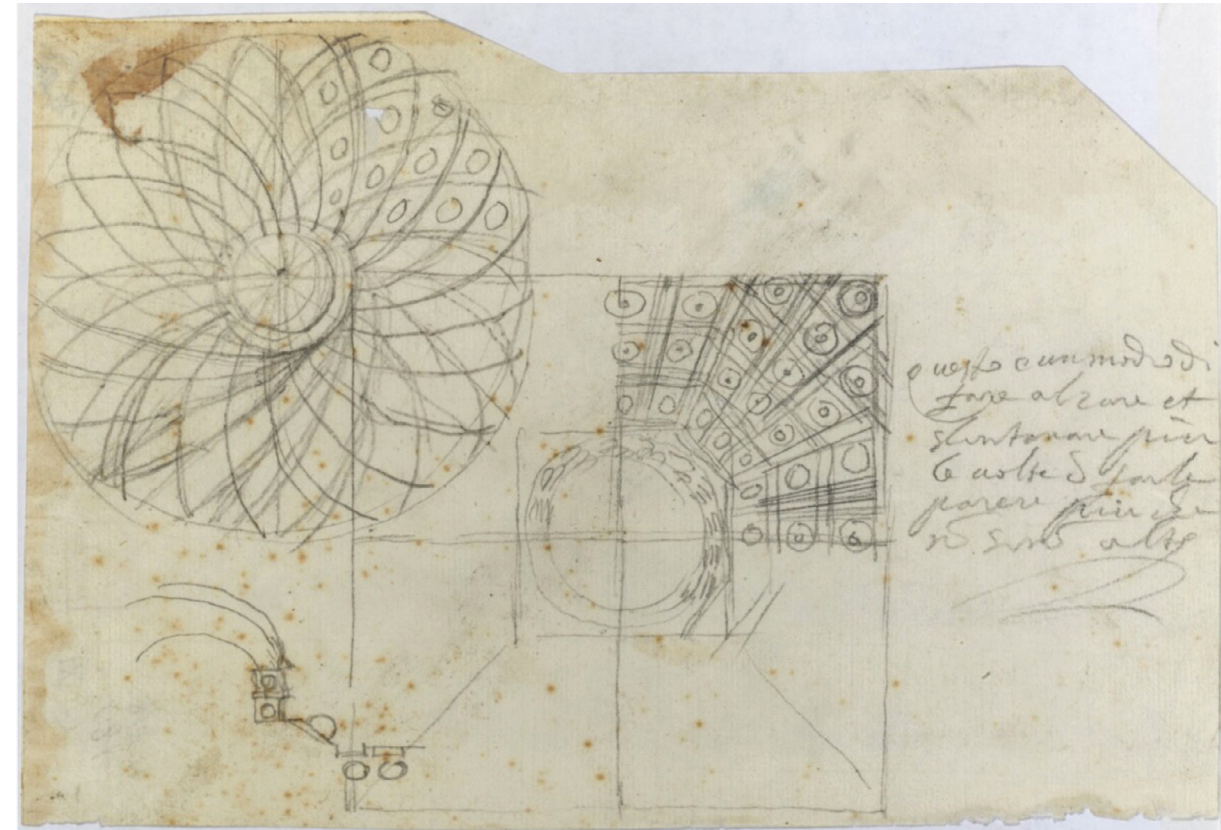 questo e un modo di
fare alzare et
slontanare piu
le volte & farle
parere piu che
nõ sono alte